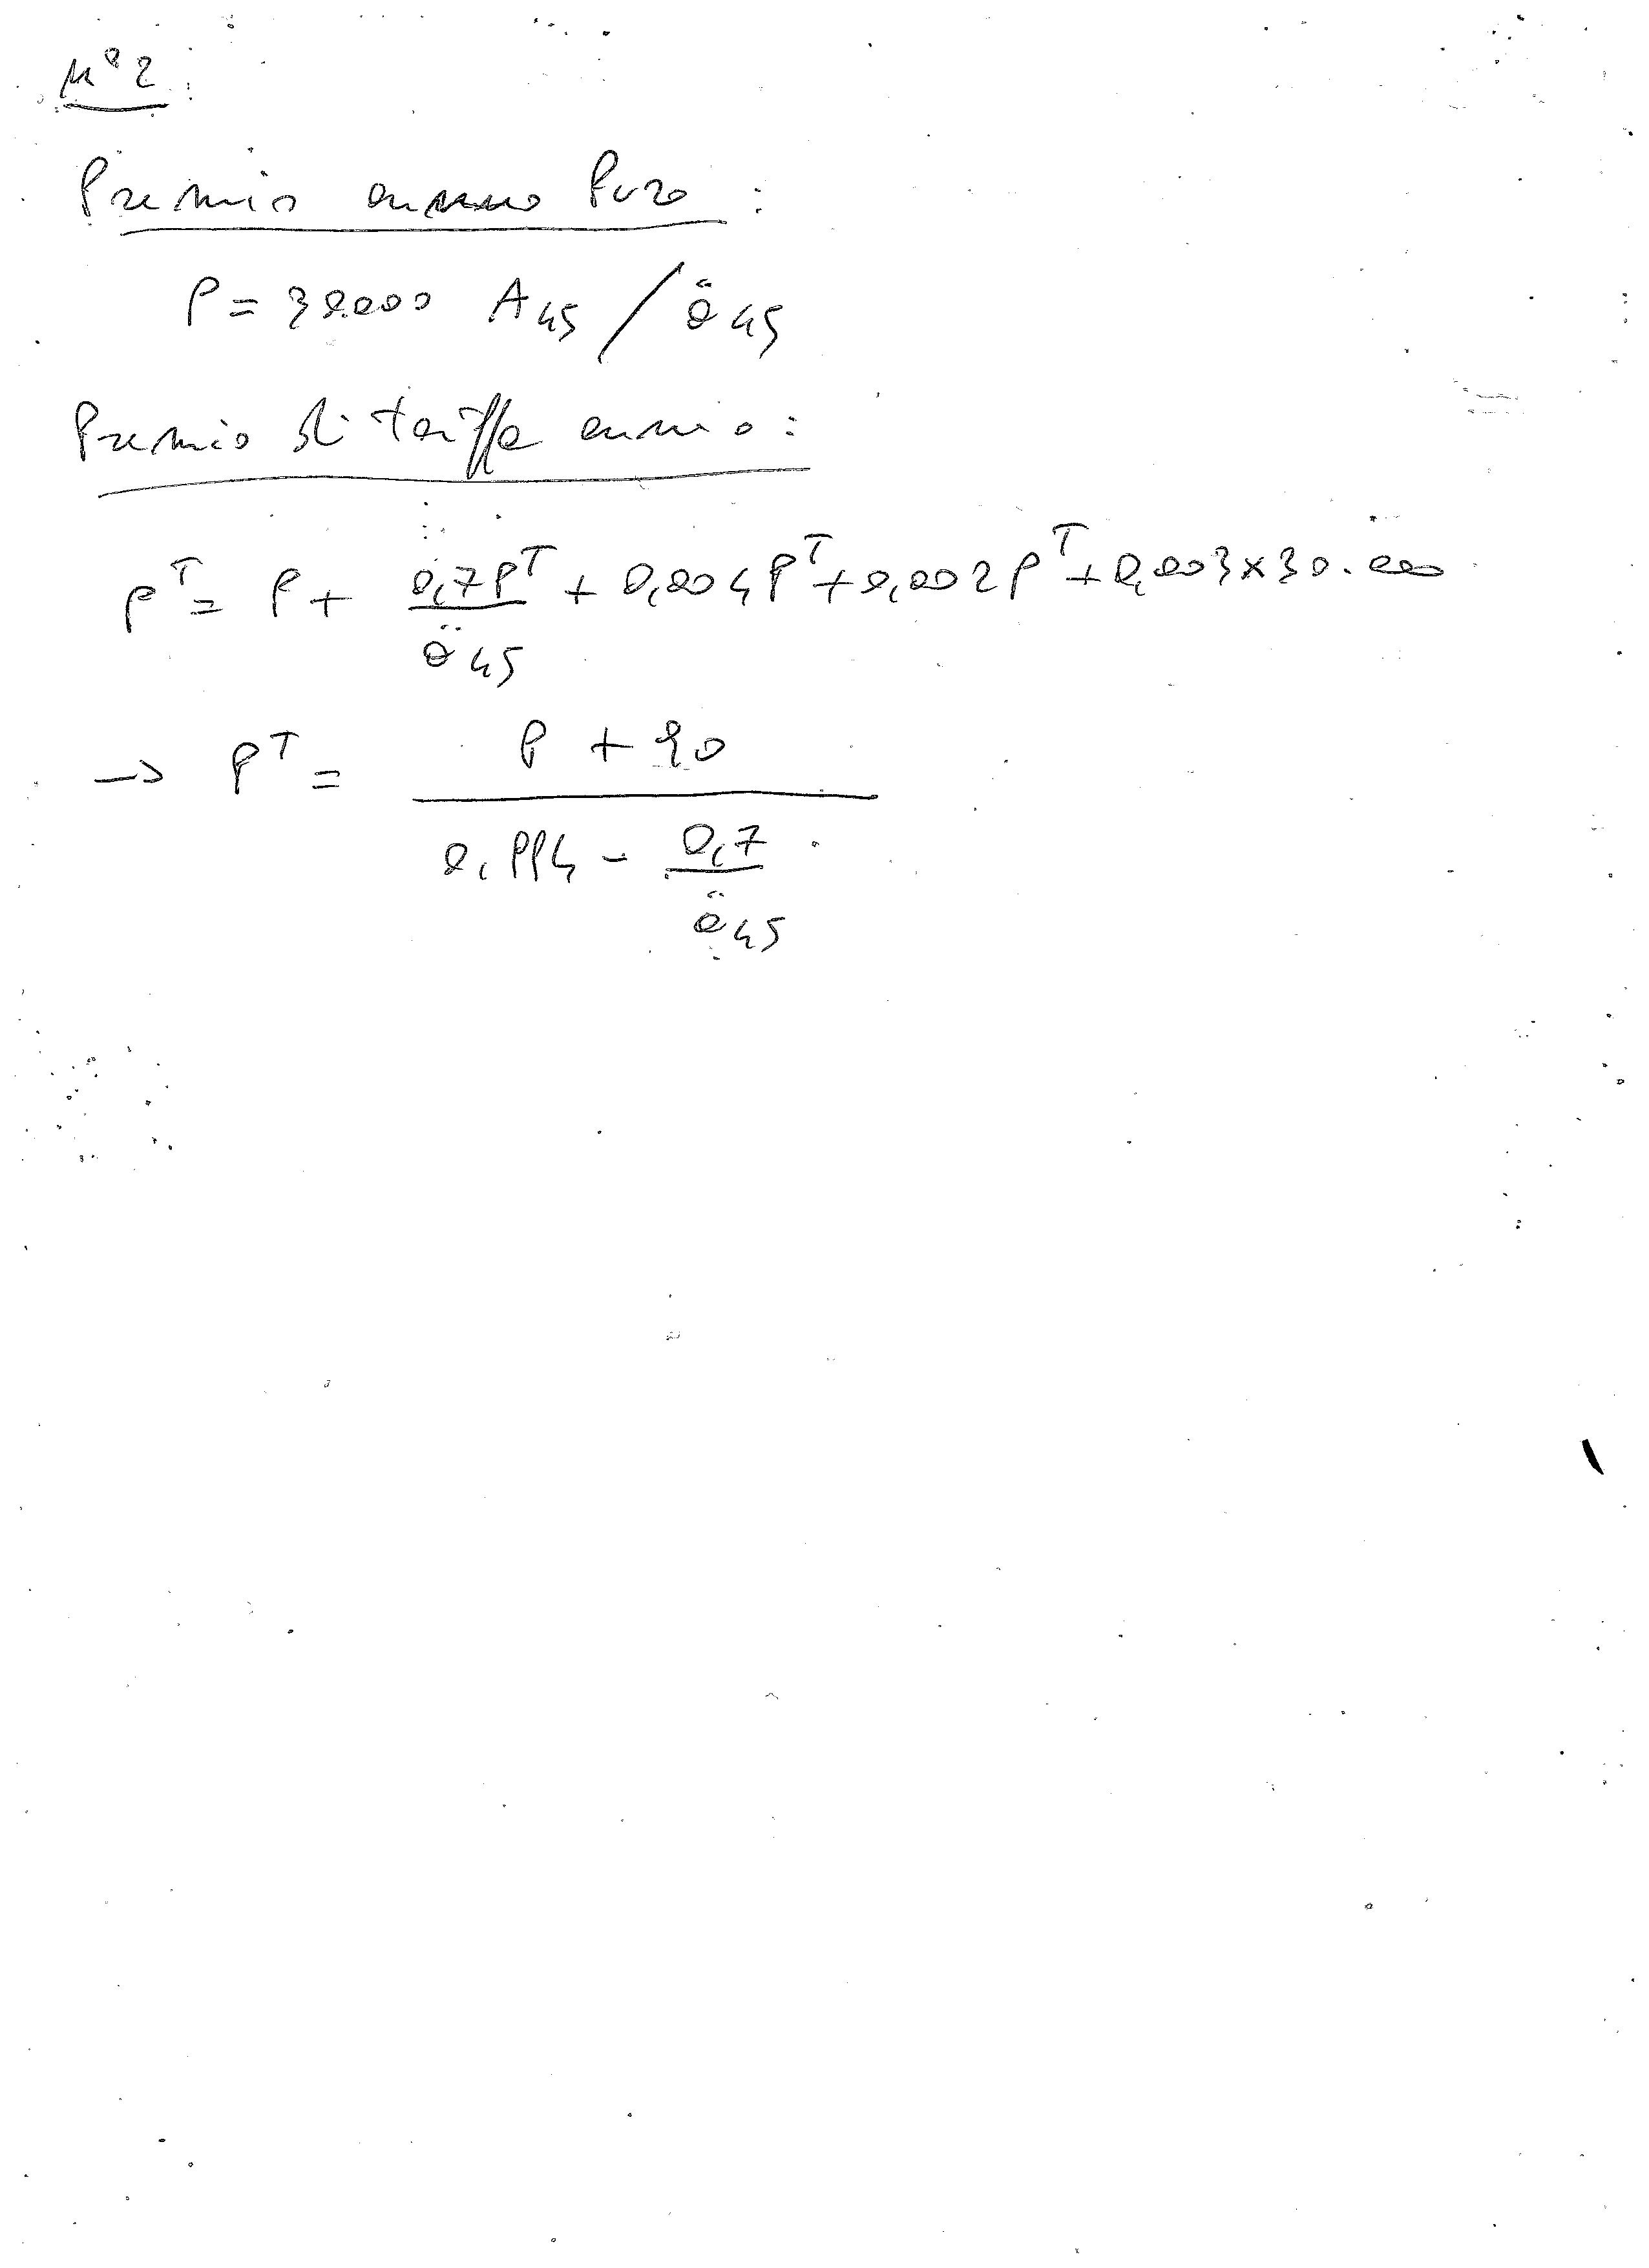 n° 2
Premio annuo Puro :
P = 30000 A45 / ä45
Premio di tariffa annuo :
P^T = P + 0,7P^T / ä45 + 0,004P^T + 0,002P^T + 0,003 x 30.000
→ P^T = (P + 90) / (0,994 - 0,7 / ä45)